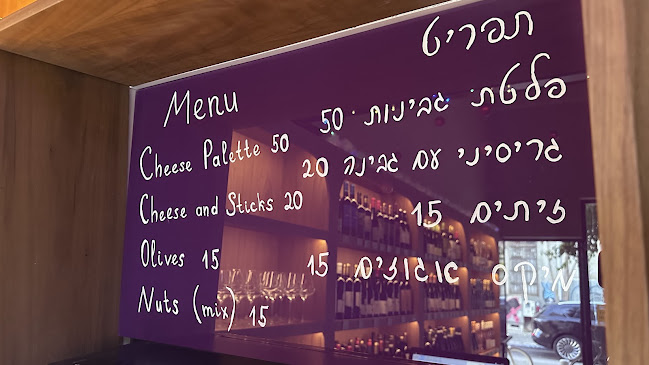 תפריט
Menu
פלטת גבינות 50
Cheese Palette 50
גריסיני עם גבינה 20
Cheese and Sticks 20
זיתים 15
Olives 15
מיקס אגוזים 15
Nuts (mix) 15